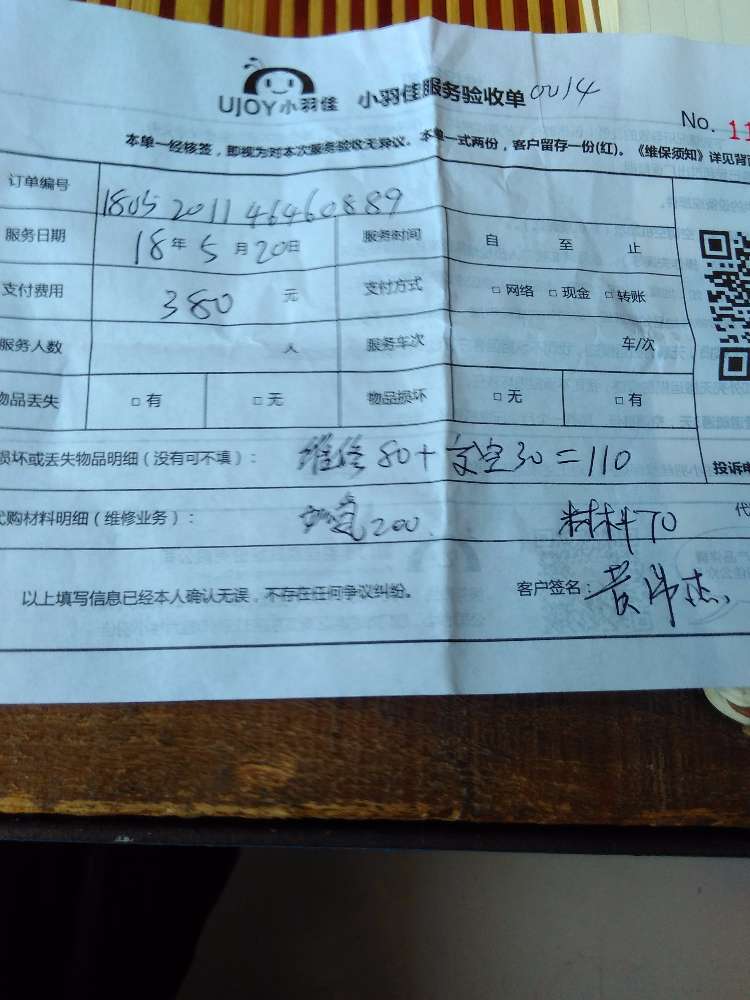 UJOY小羽佳 小羽佳服务验收单 0014
No. 11
本单一经核签，即视为对本次服务验收无异议。本单一式两份，客户留存一份(红)。《维保须知》详见背面
订单编号 1805201146460889
服务日期 18年5月20日 服务时间 自 至 止
支付费用 380 元 支付方式 □网络 □现金 □转账
服务人数 人 服务车次 车/次
物品丢失 □有 □无 物品损坏 □无 □有
损坏或丢失物品明细（没有可不填）： 维修80+ 30=110
投诉电
代购材料明细（维修业务）： 200 材料70
代
以上填写信息已经本人确认无误，不存在任何争议纠纷。 客户签名：